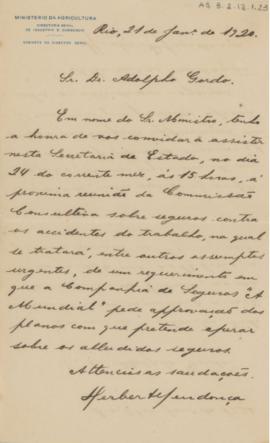 AG 3.2.12.1.23
MINISTERIO DA AGRICULTURA
DIRECTORIA GERAL
DE INDUSTRIA E COMMERCIO
GABINETE DO DIRECTOR GERAL
Rio, 21 de Janº. de 1920.
Sr. Dr. Adolpho Gordo.
Em nome do Sr. Ministro, tenho
a honra de vos convidar a assistir
nesta Secretaria de Estado, no dia
24 do corrente mez, ás 15 horas, á
proxima reunião da Commissão
Consultiva sobre seguros contra
os accidentes do trabalho, na qual
se tratará, entre outros assumptos
urgentes, de um requerimento em
que a Companhia de Seguros "A
Mundial" pede approvação dos
planos com que pretende operar
sobre os alludidos seguros.
Attenciosas saudações.
Herbert Mendonça